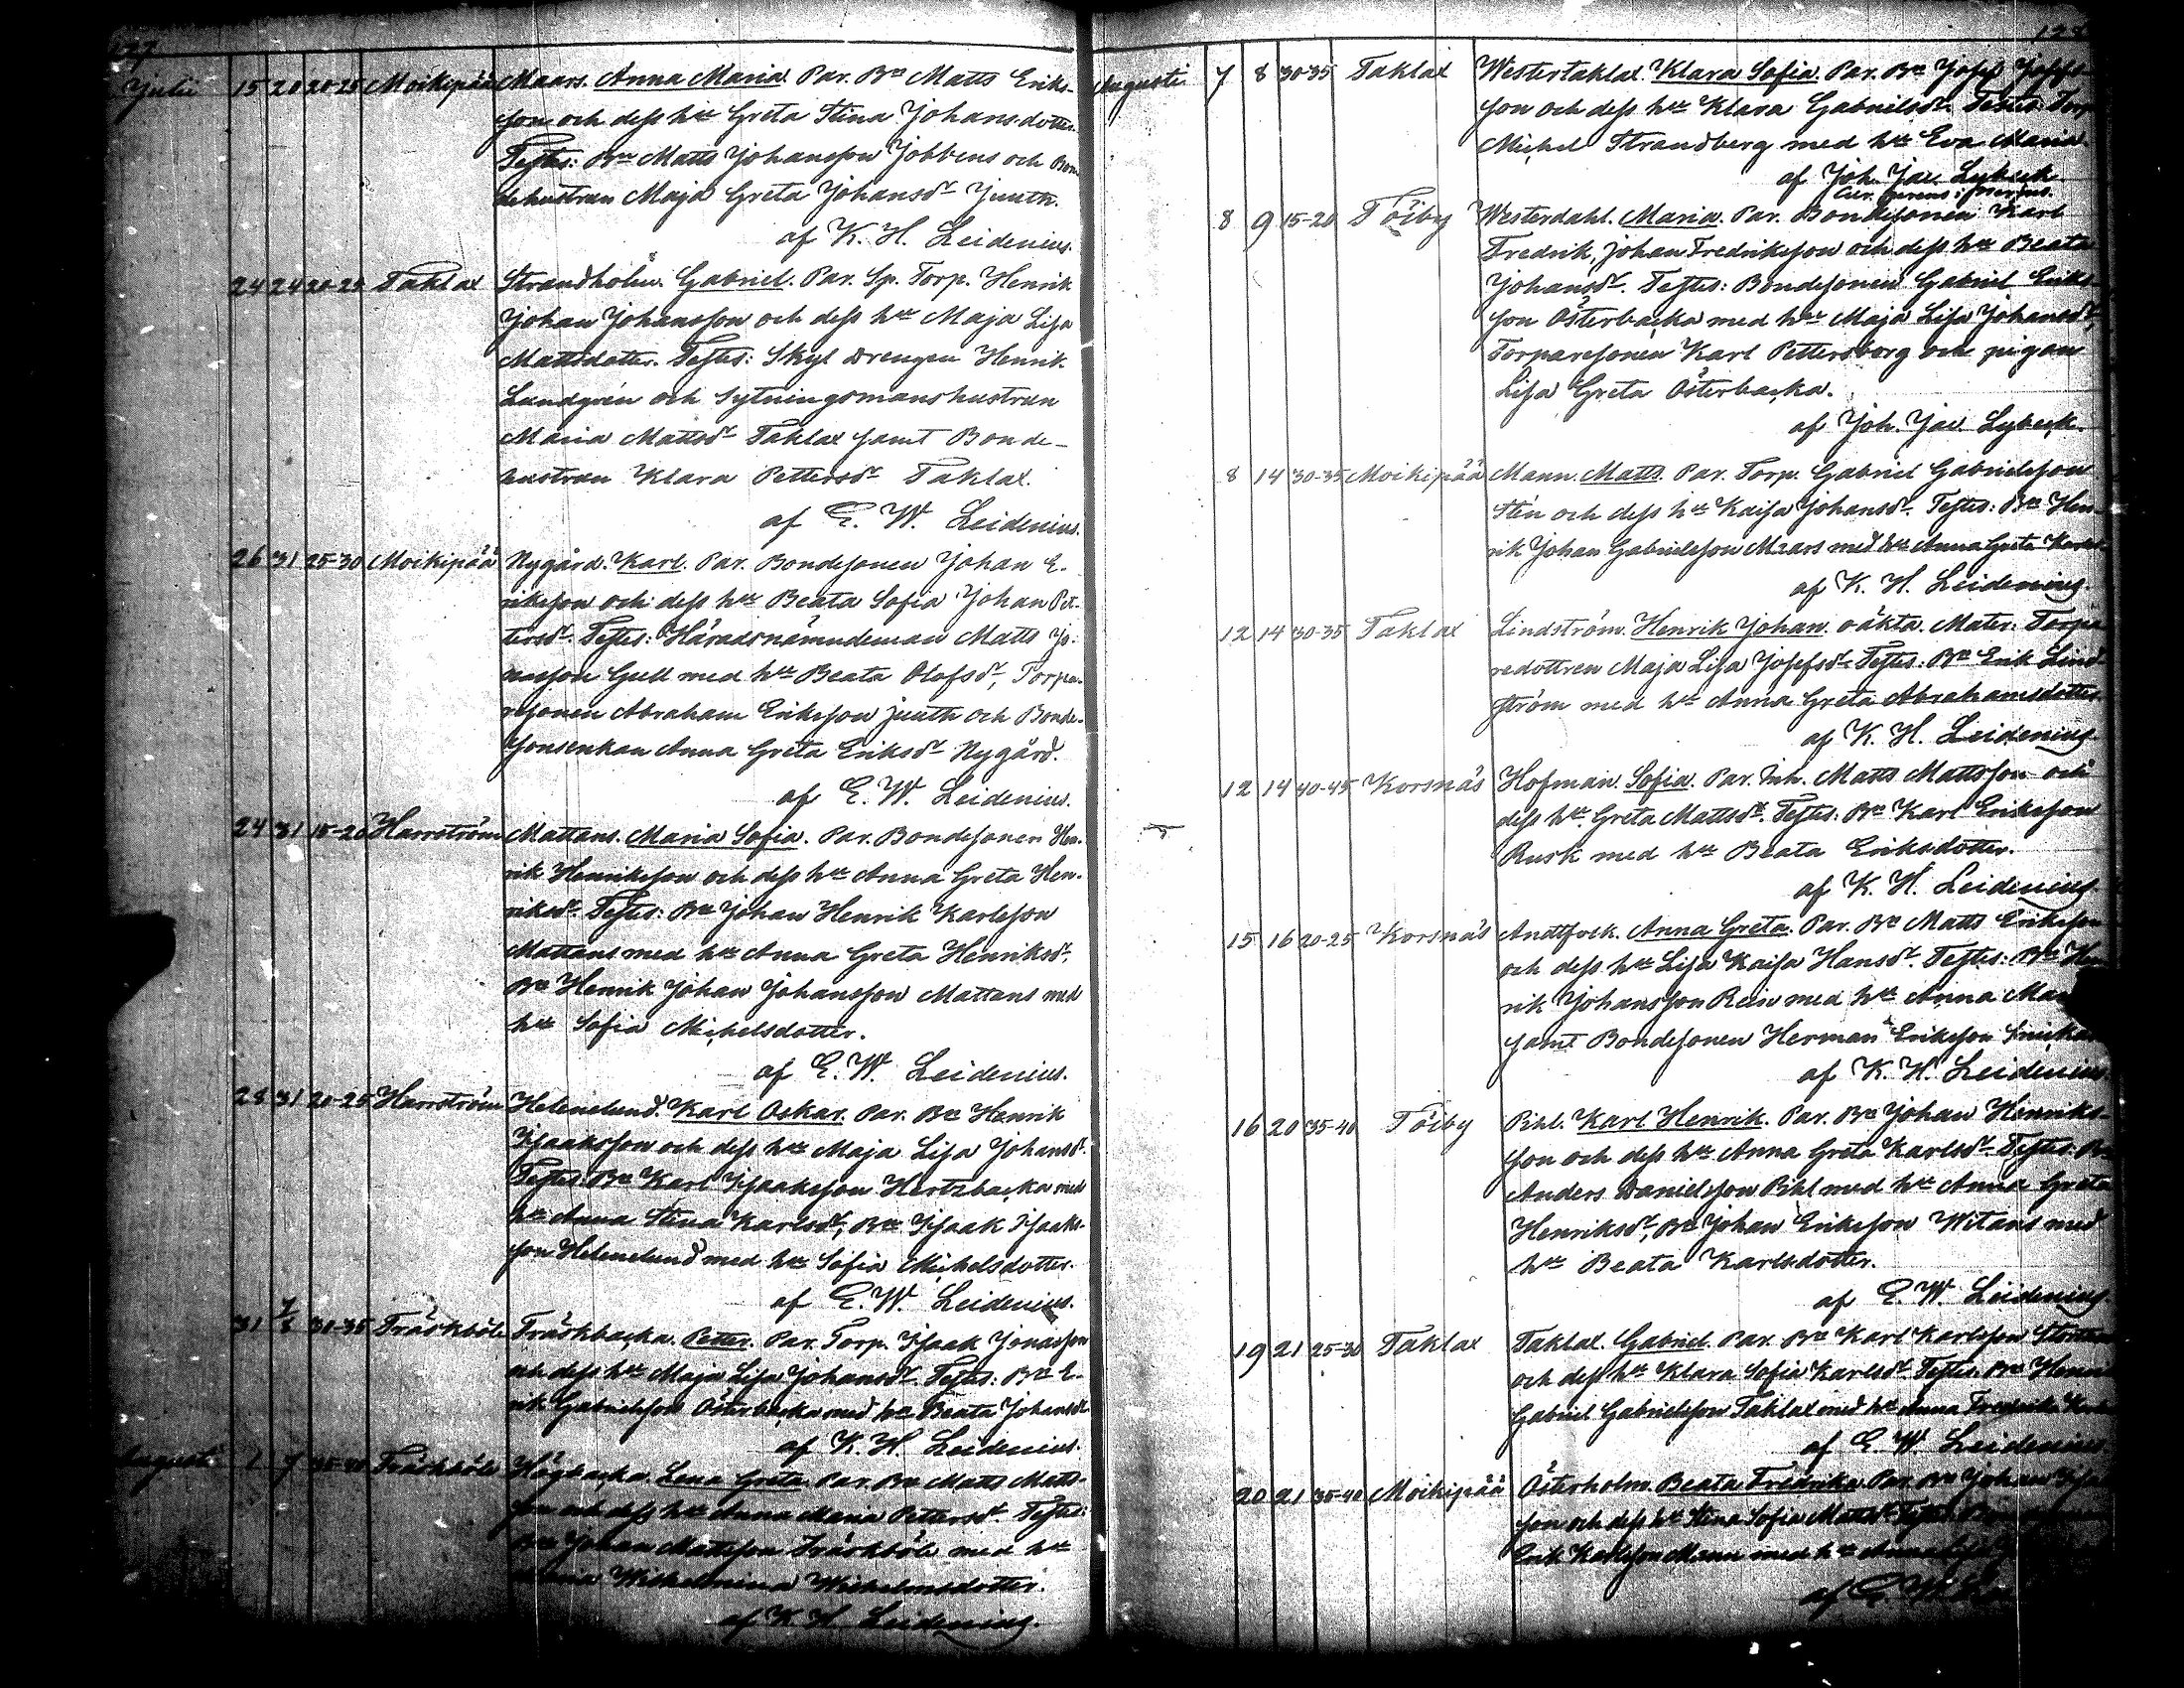 127
Julii 15 20 20-25 Moikipää Maars. Anna Maria. Par. Bn Matts Eriks-
son och dess hu Greta Stina Johansdotter.
Testes: Bn Matts Johansson Jobbens och Bon-
dehustrun Maja Greta Johansdr Juuth.
af K. H. Leidenius.
24 24 20-25 Taklax Strandholm. Gabriel. Par. Sp. Torp. Henrik
Johan Johansson och dess hu Maja Lisa
Mattsdotter. Testes: Skyl drengen Henrik
Lundgrén och Sytningsmanshustrun
Maria Mattsdr Taklax samt Bonde-
hustrun Klara Pettersdr Taklax.
af E. W. Leidenius.
26 31 25-30 Moikipää Nygård. Karl. Par. Bondesonen Johan E-
riksson och dess hu Beata Sofia Johan Pet-
tersdr. Testes: Häradsnämndeman Matts Jo-
nasson Gull med hu Beata Olofsdr, Torpa-
resonen Abraham Eriksson Juuth och Bonde-
sonsenkan Anna Greta Eriksdr Nygård.
af E. W. Leidenius.
24 31 15-20 Harrström Mattans. Maria Sofia. Par. Bondesonen Hen-
rik Henriksson och dess hu Anna Greta Hen-
riksdr. Testes: Bn Johan Henrik Karlsson
Mattans med hu Anna Greta Henriksdr,
Bn Henrik Johan Johansson Mattans med
hu Sofia Michelsdotter.
af E. W. Leidenius.
28 31 20-25 Harrström Helenelund. Karl Oskar. Par. Bn Henrik
Isaaksson och dess hu Maja Lisa Johansdr.
Testes: Bn Karl Isaaksson Hertzbacka med
hu Anna Stina Karlsdr, Bn Isaak Isaaks-
son Helenelund med hu Sofia Michelsdotter.
af E. W. Leidenius.
31 7/8 30-35 Träskböle Träskbacka. Petter. Par. Torp. Isaak Jonasson
och dess hu Maja Lisa Johansdr. Testes: Bn E-
rik Gabrielsson Österbacka med hu Beata Johansdr
af K. H. Leidenius.
Augusti 2 7 35-40 Träskböle Högbacka. Lena Greta. Par. Bn Matts Matts-
son och dess hu Anna Maria Pettersdr. Testes:
Bn Johan Mattsson Träskböle med hu
Wilhelmina Wilhelmsdotter.
af K. H. Leidenius.
Augusti 7 8 30-35 Taklax Westertaklax. Klara Sofia. Par. Bn Josef Josefs-
son och dess hu Klara Gabrielsdr. Testes: Torp
Michel Strandberg med hu Eva Maria.
af Joh. Jac. Lybeck
8 9 15-20 Töiby Westerdahl. Maria. Par. Bondesonen Karl
Fredrik, Johan Fredriksson och dess hu Beata
Johansdr. Testes: Bondesonen Gabriel Eriks-
son Österbacka med hu Maja Lisa Johansdr,
Torparesonen Karl Pettersborg och pigan
Lisa Greta Österbacka.
af Joh. Jac. Lybeck.
8 14 30-35 Moikipää Mann. Matts. Par. Torp. Gabriel Gabrielsson
Stén och dess hu Kaisa Johansdr. Testes: Bn Hen-
rik Johan Gabrielsson Maars med hu Anna Greta
af K. H. Leidenius.
12 14 30-35 Taklax Lindström. Henrik Johan. oäkta. Mater: Torpa-
redottren Maja Lisa Josefsdr. Testes: Bn Erik Lind-
ström med hu Anna Greta Abrahamsdotter
af K. H. Leidenius
12 14 40-45 Korsnäs Hofman. Sofia. Par. Inh. Matts Mattsson och
dess hu Greta Mattsdr. Testes: Bn Karl Eriksson
Rusk med hu Beata Eriksdotter.
af K. H. Leidenius
15 16 20-25 Korsnäs Anna Greta. Par. Bn Matts Eriksson
och dess hu Lisa Kaisa Hansdr. Testes: Bn Hen
rik Johansson Rein med hu Anna
samt Bondesonen Herman Eriksson
af K. H. Leidenius.
16 20 35-40 Töiby Pihl. Karl Henrik. Par. Bn Johan Henriks-
son och dess hu Anna Greta Karlsdr. Testes: Bn
Anders Danielsson Pihl med hu Anna Greta
Henriksdr, Bn Johan Eriksson Witans med
hu Beata Karlsdotter.
af E. W. Leidenius.
19 21 25-30 Taklax Taklax. Gabriel. Par. Bn Karl Karlsson
och dess hu Klara Sofia Karlsdr. Testes: Bn
Gabriel Gabrielsson Taklax med hu Anna Fredrika
af E. W. Leidenius.
20 21 35-40 Moikipää Österholm. Beata Fredrika. Par. Bn Johan
son och dess hu Stina Sofia Mattsdr. Testes:
Erik Karlsson Mann med hu Anna
af E. W.